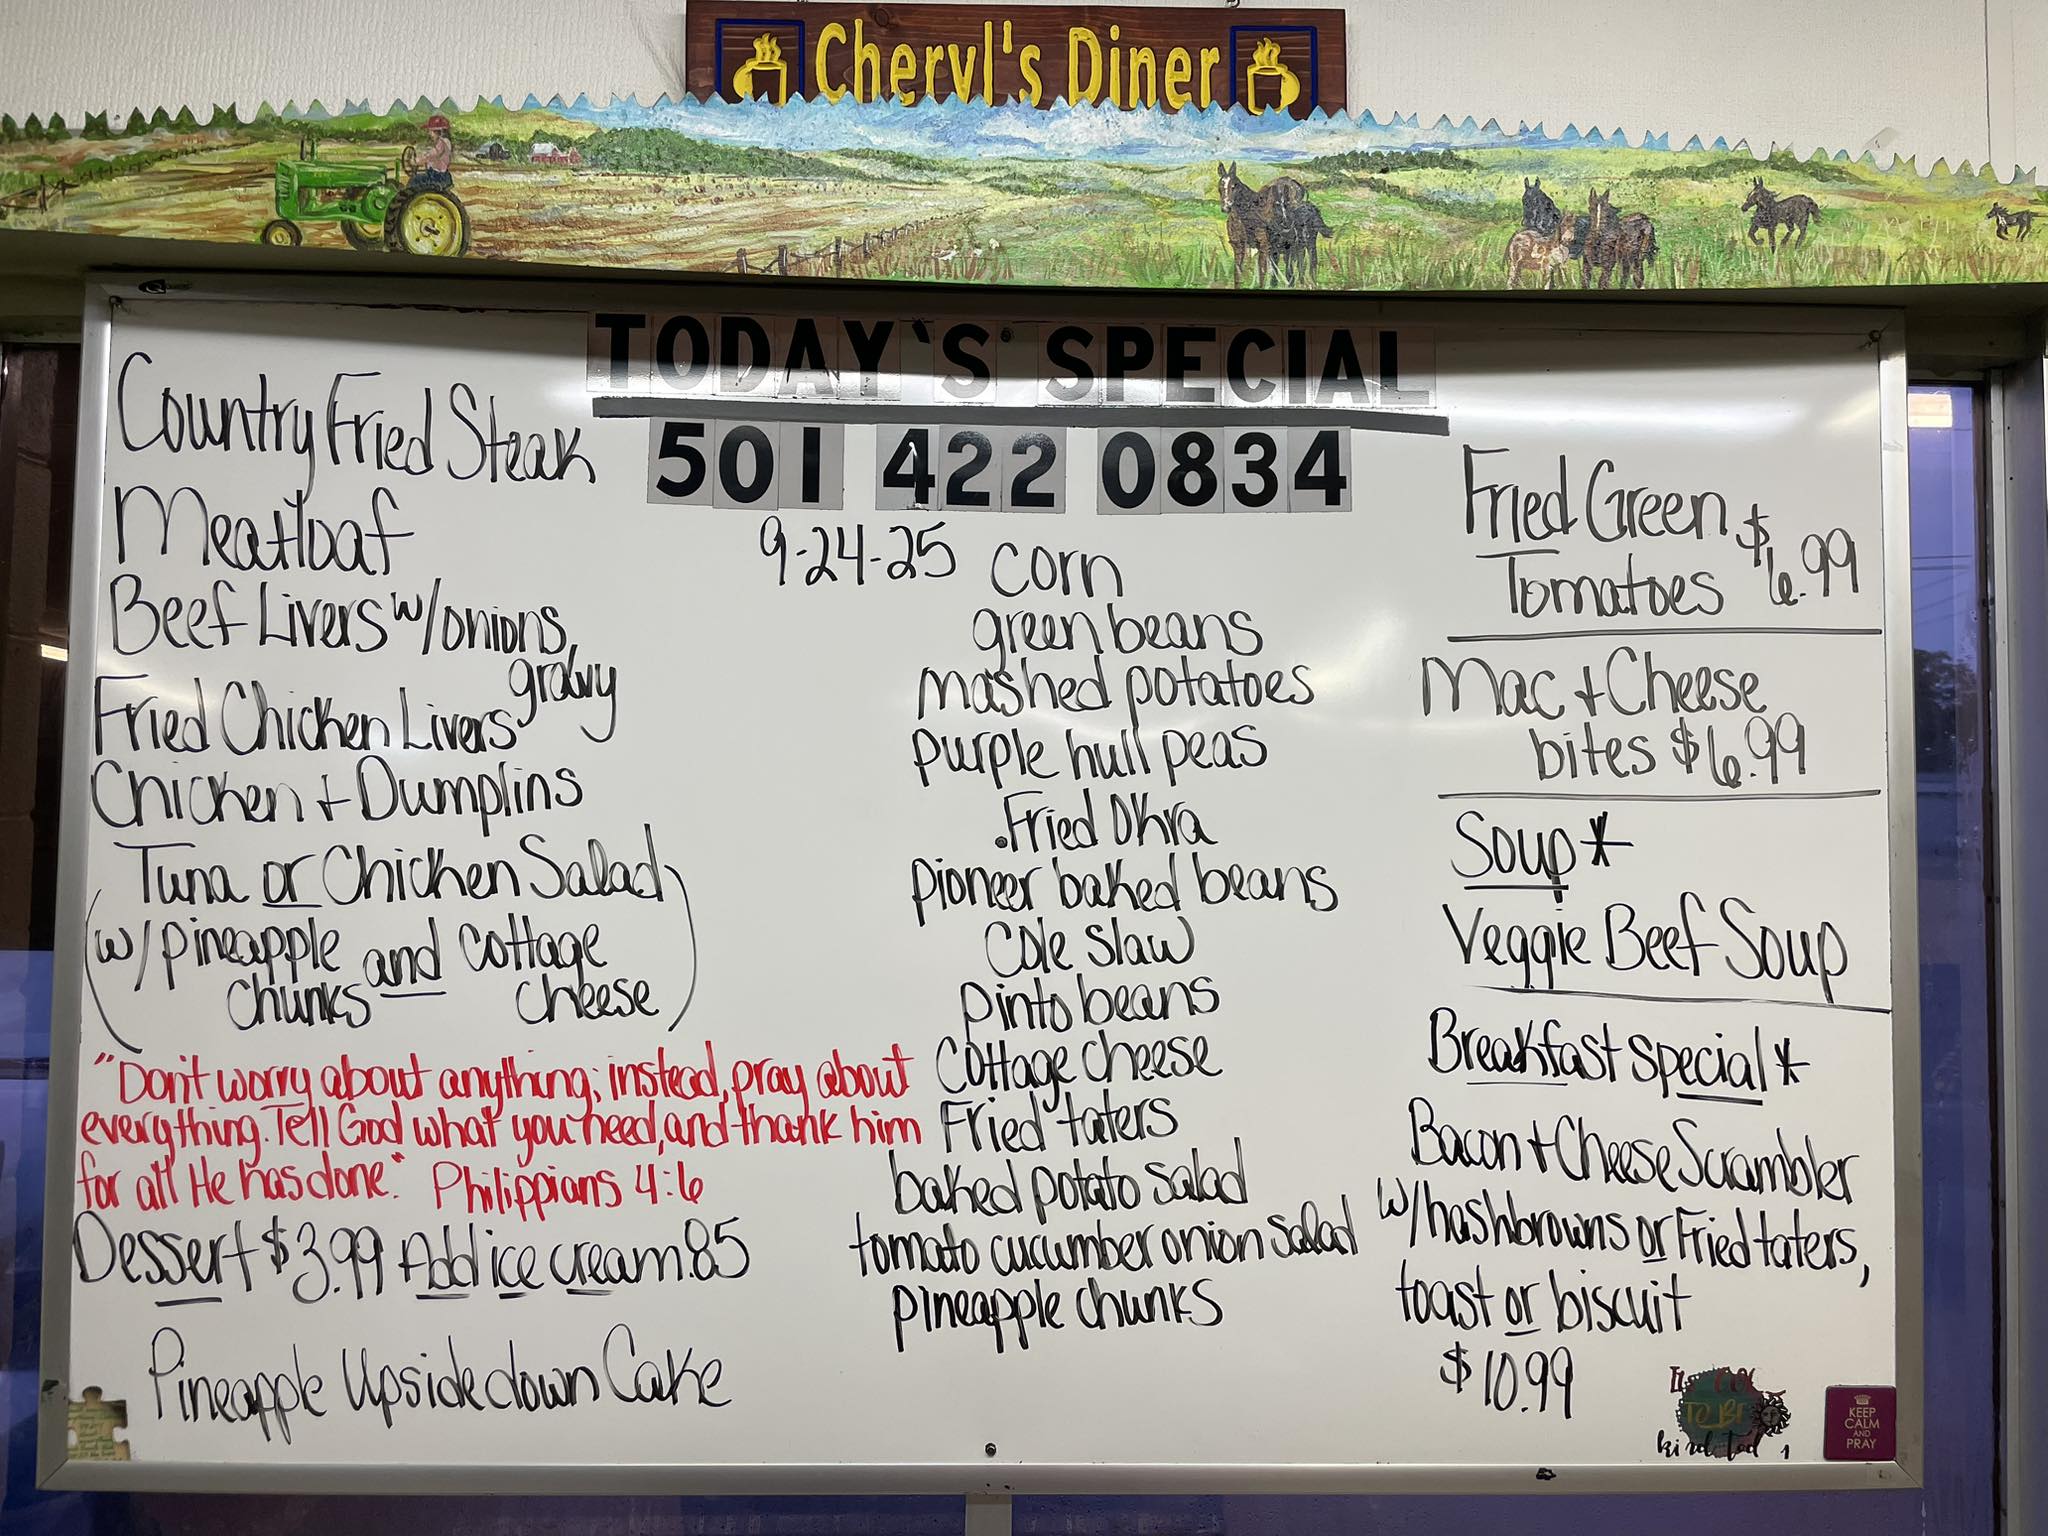 Cheryl's Diner
TODAY'S SPECIAL
501 422 0834
9-24-25
Country Fried Steak
Meatloaf
Beef Livers w/onions,
gravy
Fried Chicken Livers
Chicken + Dumplins
Tuna or Chicken Salad
(w/pineapple and cottage
chunks cheese)
"Don't worry about anything; instead, pray about
everything. Tell God what you need, and thank him
for all He has done." Philippians 4:6
Dessert $3.99 Add ice cream .85
Pineapple Upsidedown Cake
corn
green beans
mashed potatoes
purple hull peas
Fried Okra
pioneer baked beans
Cole slaw
pinto beans
Cottage cheese
Fried taters
baked potato salad
tomato cucumber onion salad
pineapple chunks
Fried Green
Tomatoes $6.99
Mac + Cheese
bites $6.99
Soup*
Veggie Beef Soup
Breakfast special*
Bacon + Cheese Scrambler
w/hashbrowns or Fried taters,
toast or biscuit
$10.99
KEEP
CALM
AND
PRAY